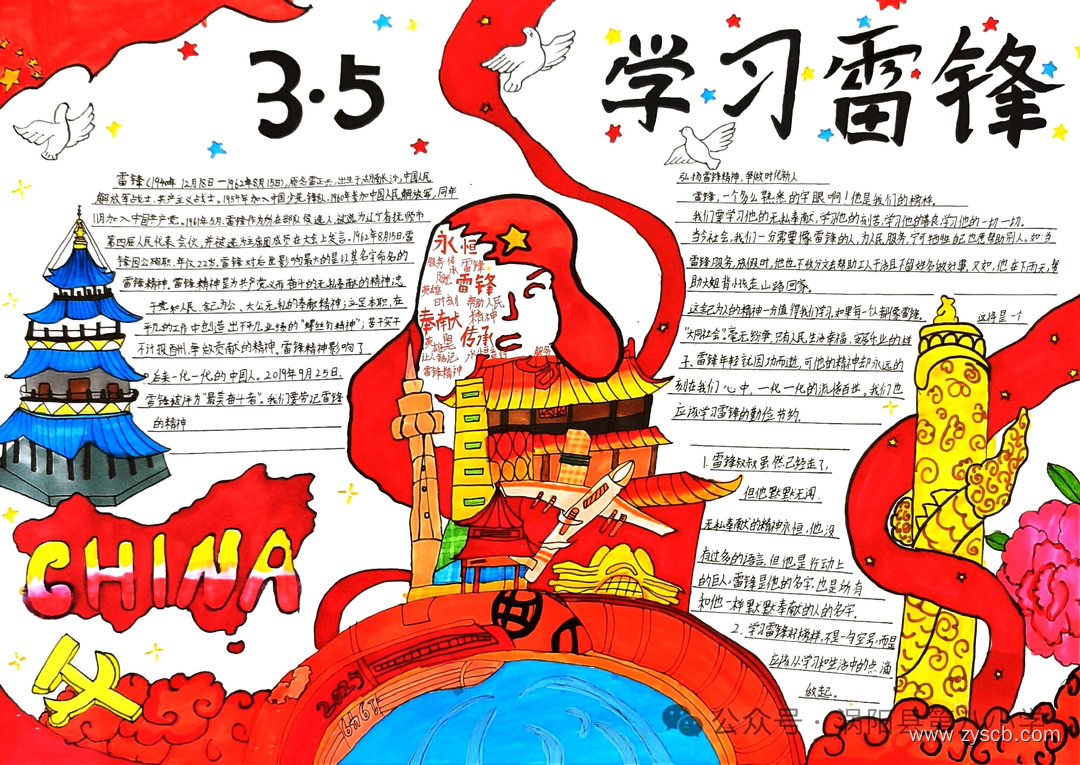 3·5
学习雷锋
雷锋（1940年12月18日—1962年8月15日），原名雷正兴，出生于湖南长沙，中国人民
解放军战士，共产主义战士。1954年加入中国少先锋队，1960年参加中国人民解放军，同年
11月加入中国共产党。1961年5月，雷锋作为所在部队候选人，被选为辽宁省抚顺市
第四届人民代表会议，并被选为主席团成员在大会上发言。1962年8月15日，雷
锋因公殉职，年仅22岁，雷锋对后世影响最大的是以其名字命名的
雷锋精神，雷锋精神是为共产党义而奋斗的无私奉献的精神；忠
于党和人民、舍己为公、大公无私的奉献精神；立足本职、在
平凡的工作中创造出不平凡业绩的“螺丝钉精神”；苦干实干
不计报酬、争做贡献的精神。雷锋精神影响了
后来一代一代的中国人。2019年9月25日，
雷锋被评为“最美奋斗者”。我们要劳记雷锋
的精神
永恒
雷锋
英雄
雷锋
时刻
帮助人民
奉献
精神
传承
让人铭记
雷锋精神
服务
弘扬雷锋精神，争做时代新人
雷锋，一个多么熟悉的字眼啊！他是我们的榜样，
我们要学习他的无私奉献，学习他的刻苦，学习他的善良，学习他的一切一切。
当今社会，我们一分需要像雷锋的人，为人民服务，宁可牺牲自己也愿帮助别人。如：当
雷锋服务，放假时，他也不收分文去帮助工人干活且不留姓名做好事，又如，他在下雨天，帮
助大姐背小孩走山路回家。
这舍己为人的精神一分值得我们学习，如果每一个人都像雷锋，这将是一个
“大同社会”，毫无纷争，只有人民生活幸福，安居乐业的样
子，雷锋年轻就因功而逝，可他的精神却永远的
刻在我们心中，一代一代的流传百世。我们也
应该学习雷锋的勤俭节约。
1.雷锋叔叔虽然已经走了，
但他默默无闻、
无私奉献的精神永恒，他没
有过多的语言，但他是行动上
的巨人，雷锋是他的名字也是所有
和他一样默默奉献的人的名字。
2.学习雷锋好榜样，不是一句空号，而是
应该从学习和生活中的点滴
做起。
CHINA
2025
公众号·涡阳县第八小学
www.zyscb.com